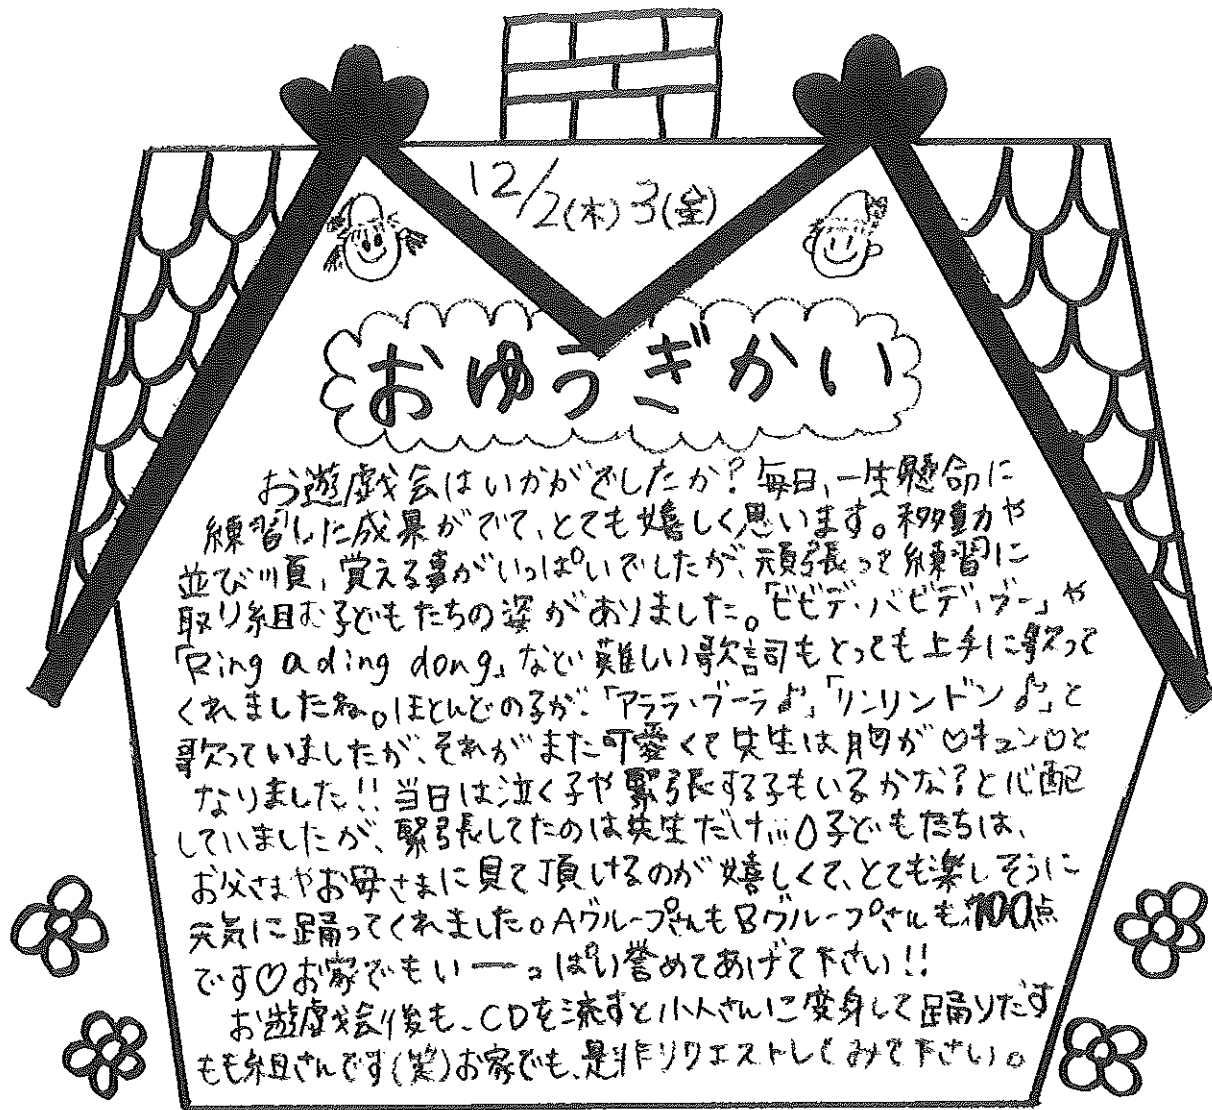 12/2(木)3(金)
おゆうぎかい
お遊戯会はいかがでしたか?毎日、一生懸命に
練習した成果がでて、とても嬉しく思います。移動や
並び順、覚える事がいっぱいでしたが、頑張って練習に
取り組む子どもたちの姿がありました。「ビビデ・バビデ・ブー」や
「Ring a ding dong」など難しい歌詞もとっても上手に歌って
くれましたね。ほとんどの子が、「アララ・ブーラ♪」「リンリンドン♪」と
歌っていましたが、それがまた可愛くて先生は胸が♡キュン♡と
なりました!!当日は泣く子や緊張する子もいるかな?と心配
していましたが、緊張してたのは先生だけ…子どもたちは、
お父さまやお母さまに見て頂けるのが嬉しくて、とても楽しそうに
元気に踊ってくれました。AグループさんもBグループさんも100点
です♡お家でもい一っぱい誉めてあげて下さい!!
お遊戯会後も、CDを流すと小人さんに変身して踊りだす
もも組さんです(笑)お家でも、是非リクエストしてみて下さい。